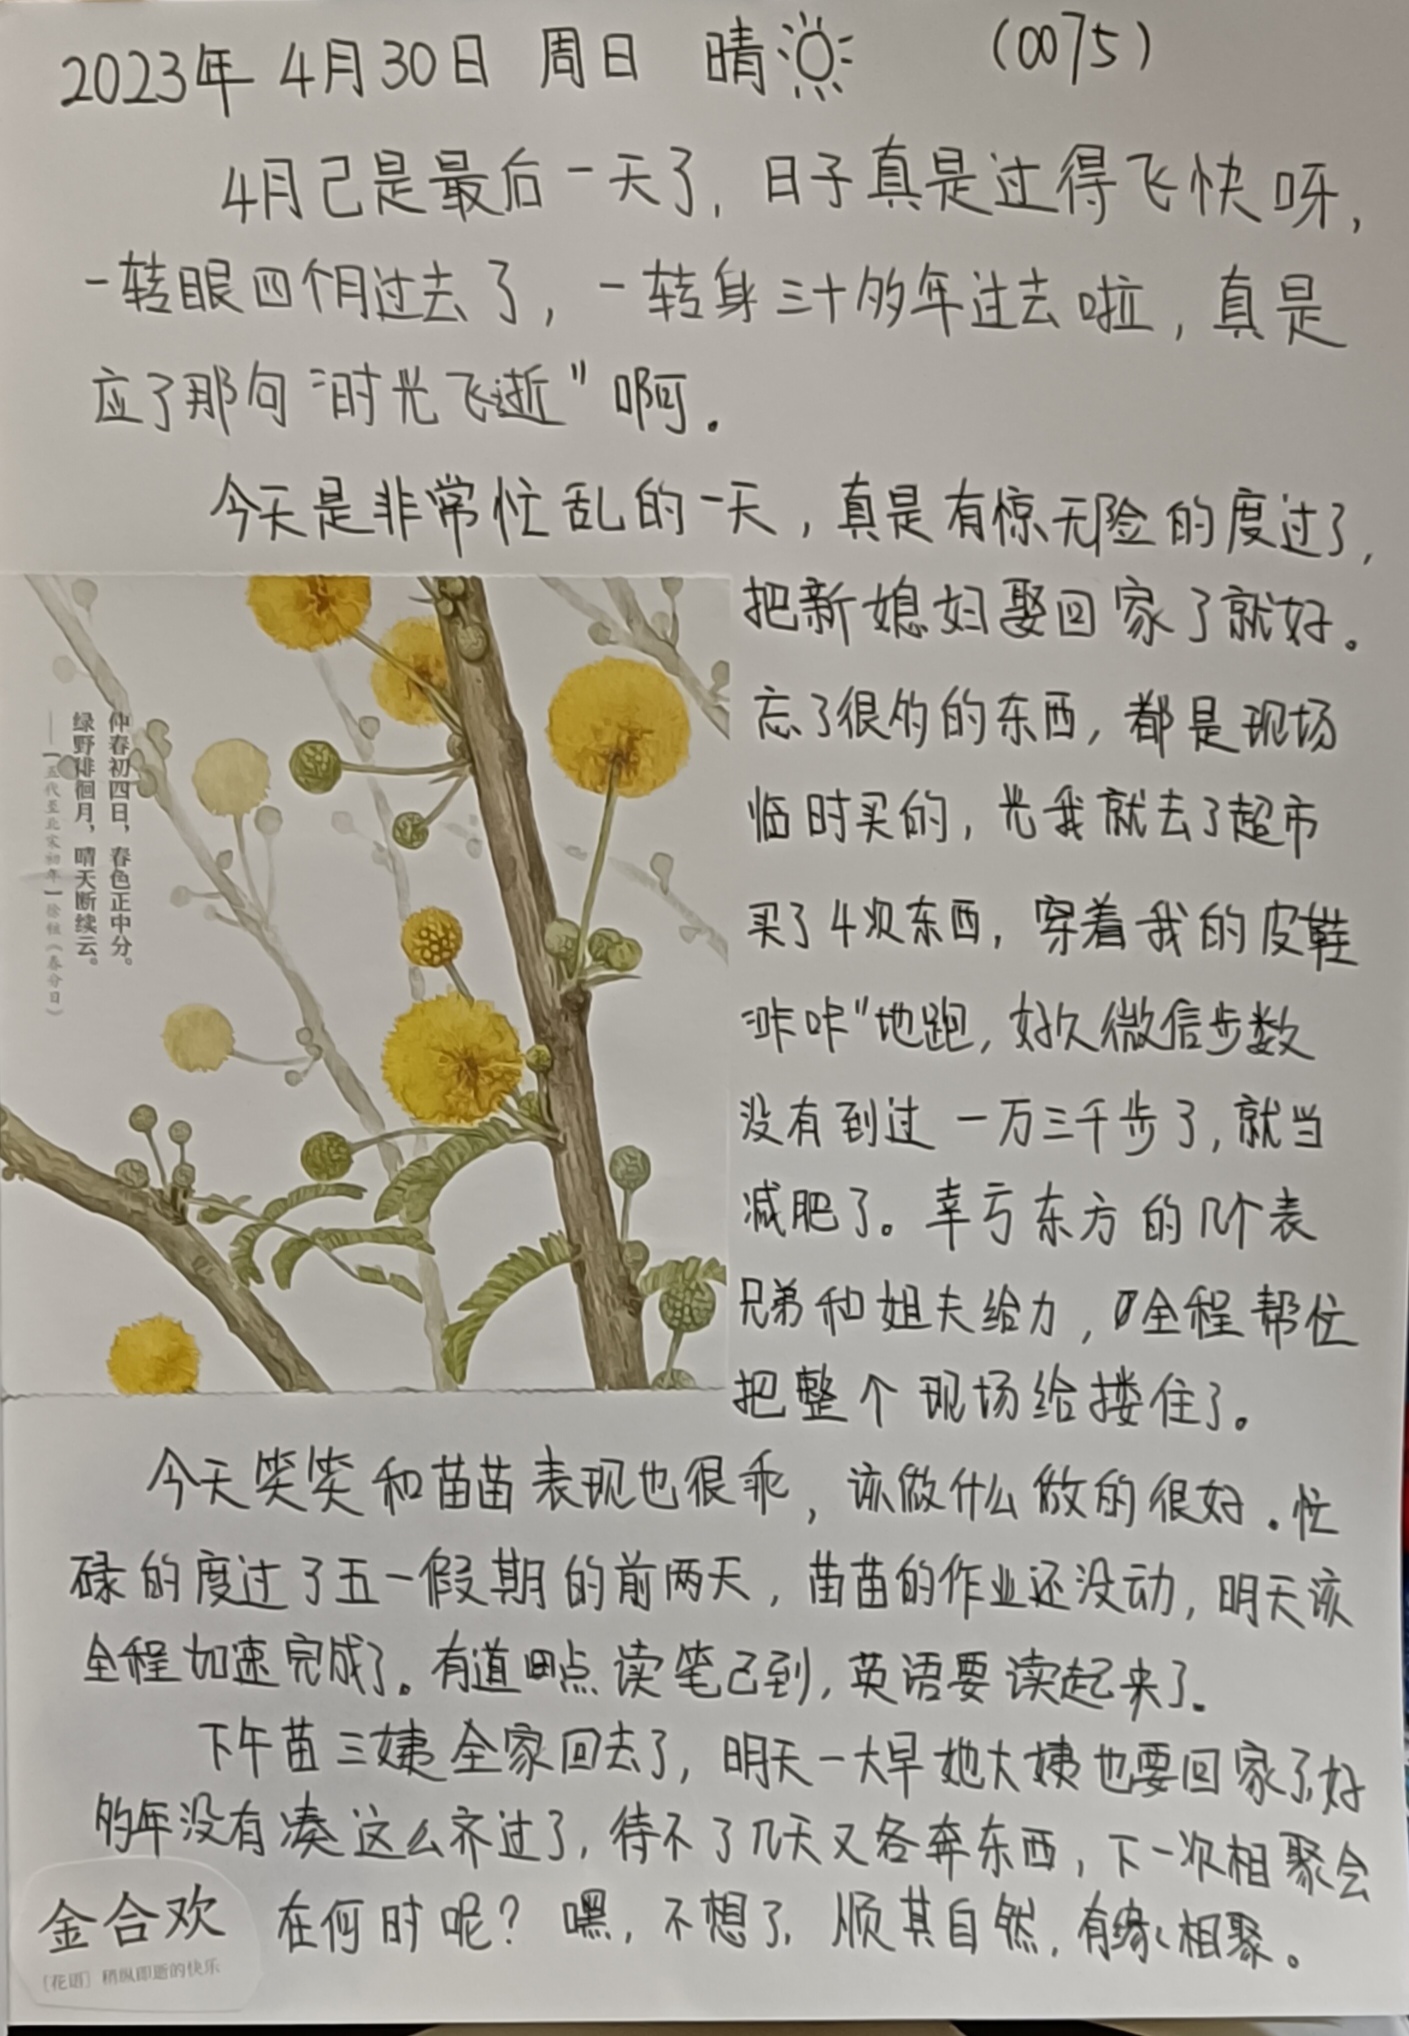 2023年 4月30日 周日 晴 (0075)
4月已是最后一天了，日子真是过得飞快呀，
一转眼四个月过去了，一转身三十多年过去啦，真是
应了那句“时光飞逝”啊.
今天是非常忙乱的一天，真是有惊无险的度过了，
把新媳妇娶回家了就好。
忘了很多的东西，都是现场
临时买的，光我就去了超市
买了4次东西，穿着我的皮鞋
“咔咔”地跑，好久微信步数
没有到过一万三千步了，就当
减肥了。幸亏东方的几个表
兄弟和姐夫给力，全程帮忙
把整个现场给搂住了。
仲春初四日，春色正中分。
绿野徘徊月，晴天断续云。
——［五代至北宋初年］徐铉《春分日》
今天笑笑和苗苗表现也很乖，该做什么做的很好.忙
碌的度过了五一假期的前两天，苗苗的作业还没动，明天该
全程加速完成了。有道点读笔已到，英语要读起来了.
下午苗三姨全家回去了，明天一大早她大姨也要回家了,好
多年没有凑这么齐过了，待不了几天又各奔东西，下一次相聚会
在何时呢？嘿，不想了，顺其自然，有缘相聚。
金合欢
［花语］稍纵即逝的快乐